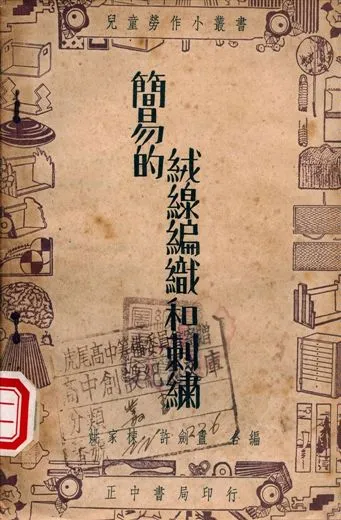 兒童勞作小叢書
簡易的
絨線編織和刺繡
虎尾高中籌備委員
高中創設紀
庫
分類
姚家棟 許劍盦 合編
正中書局印行